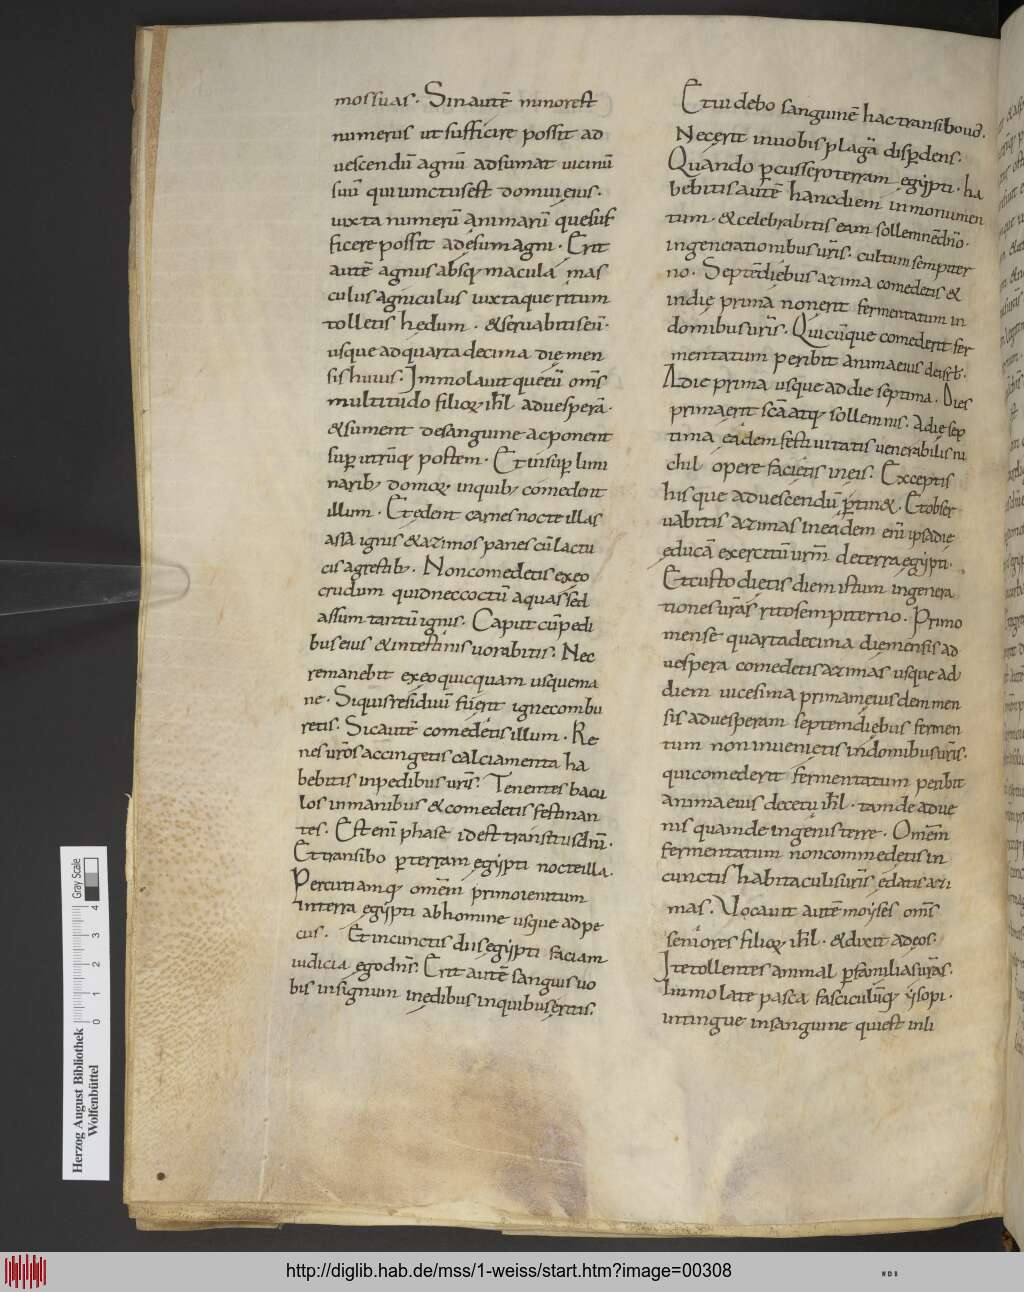 mossuas. Sinautē minorest
numerus utsufficire possit ad
uescendū agnū adsumat uicinū
suū quiiunctusest domuieius.
iuxta numerū animarū quęsuf
ficere possit adęsumagni. Erit
autē agnus absq; macula mas
culus agniculus iuxtaqueritum
tolletis hędum. &seruabitiseū.
usque adquartadecima die men
sishuius. Immolauit queeū om̄s
multitudo filiorꝝ ihl̄ aduesperā.
&sument desanguine acponent
suꝑ utrūq; postem. Etinsuꝑ limi
narib; domorꝝ. inquib; comedent
illum. Etędent carnes nocte illas
assa ignis &azimos panes cūlactu
cis agrestib;. Noncomedetis exeo
crudum quidneccoctū aquassed
assum tantū ignis. Caput cūpedi
buseius &intestinis uorabitis. Nec
remanebit exeo quicquam usquema
ne. Siquisresiduū fuerit ignecombu
retis. Sicautē comedetis illum. Re
nes uros̄ accingetis calciamenta ha
bebitis inpedibus uris̄. Tenentes bacu
los inmanibus &comedetis festinan
tes. Est enī phase idest transitusdnī.
Ettransibo ꝑterram egẏpti nocteilla.
Percutiamq; omēm primouenitum
interra egẏpti abhomine usque adpe
cus. Etincunctis diisegẏpti faciam
iudicia egodns̄. Erit autē sanguis uo
bis insignum inędibus inquibuseritis.
Etuidebo sanguinē hactransibouos.
Necerit inuobisplagā disꝑdens.
Quando ꝑcusseroterram egẏpti. ha
bebitisautē hancdiem inmonumen
tum. &celebrabitis eam sollemnēdn̄o.
ingenerationibusurīs. cultumsempiter
no. Septēdiebus azima comedetis &
indie prima nonerit fermentatum in
domibusurīs. Quicūque comederit fer
mentatum peribit animaeius deisrl̄.
Adie prima usque addie septima. Dies
primaerit scāatq; sollemnis. Adie sep
tima eadem festiuitatis uenerabilis ni
chil opere facietis ineis. Exceptis
hisque aduescendū ꝑtin&. Etobser
uabitis azimas ineadem enī ipsadie
educā exercitū urm̄ deterraegẏpti.
Etcustodietis diem istum ingenera
tiones urās ritosempiterno. Primo
mense quartadecima diemensis ad
uespera comedetis azimas usque ad
diem uicesima primameiusdem men
sis aduesperam septemdiebus fermen
tum noninuenietis indomibusurīs.
quicomederit fermentatum peribit
animaeius decetu ihl̄. tamde adue
nis quamde ingenisterre. Omēm
fermentatum noncommedetis in
cunctis habitaculisurīs ędatis azi
mas. Uocauit autē moẏses om̄s
seniores filiorꝝ ihl̄. &dixit adeos.
Itetollentes animal ꝑfamiliasurās.
Immolate pasca fasciculūq; ẏsopi.
intingue insanguine quiest inli
Herzog August Bibliothek
Wolfenbüttel
0 1 2 3 4
Gray Scale
http://diglib.hab.de/mss/1-weiss/start.htm?image=00308